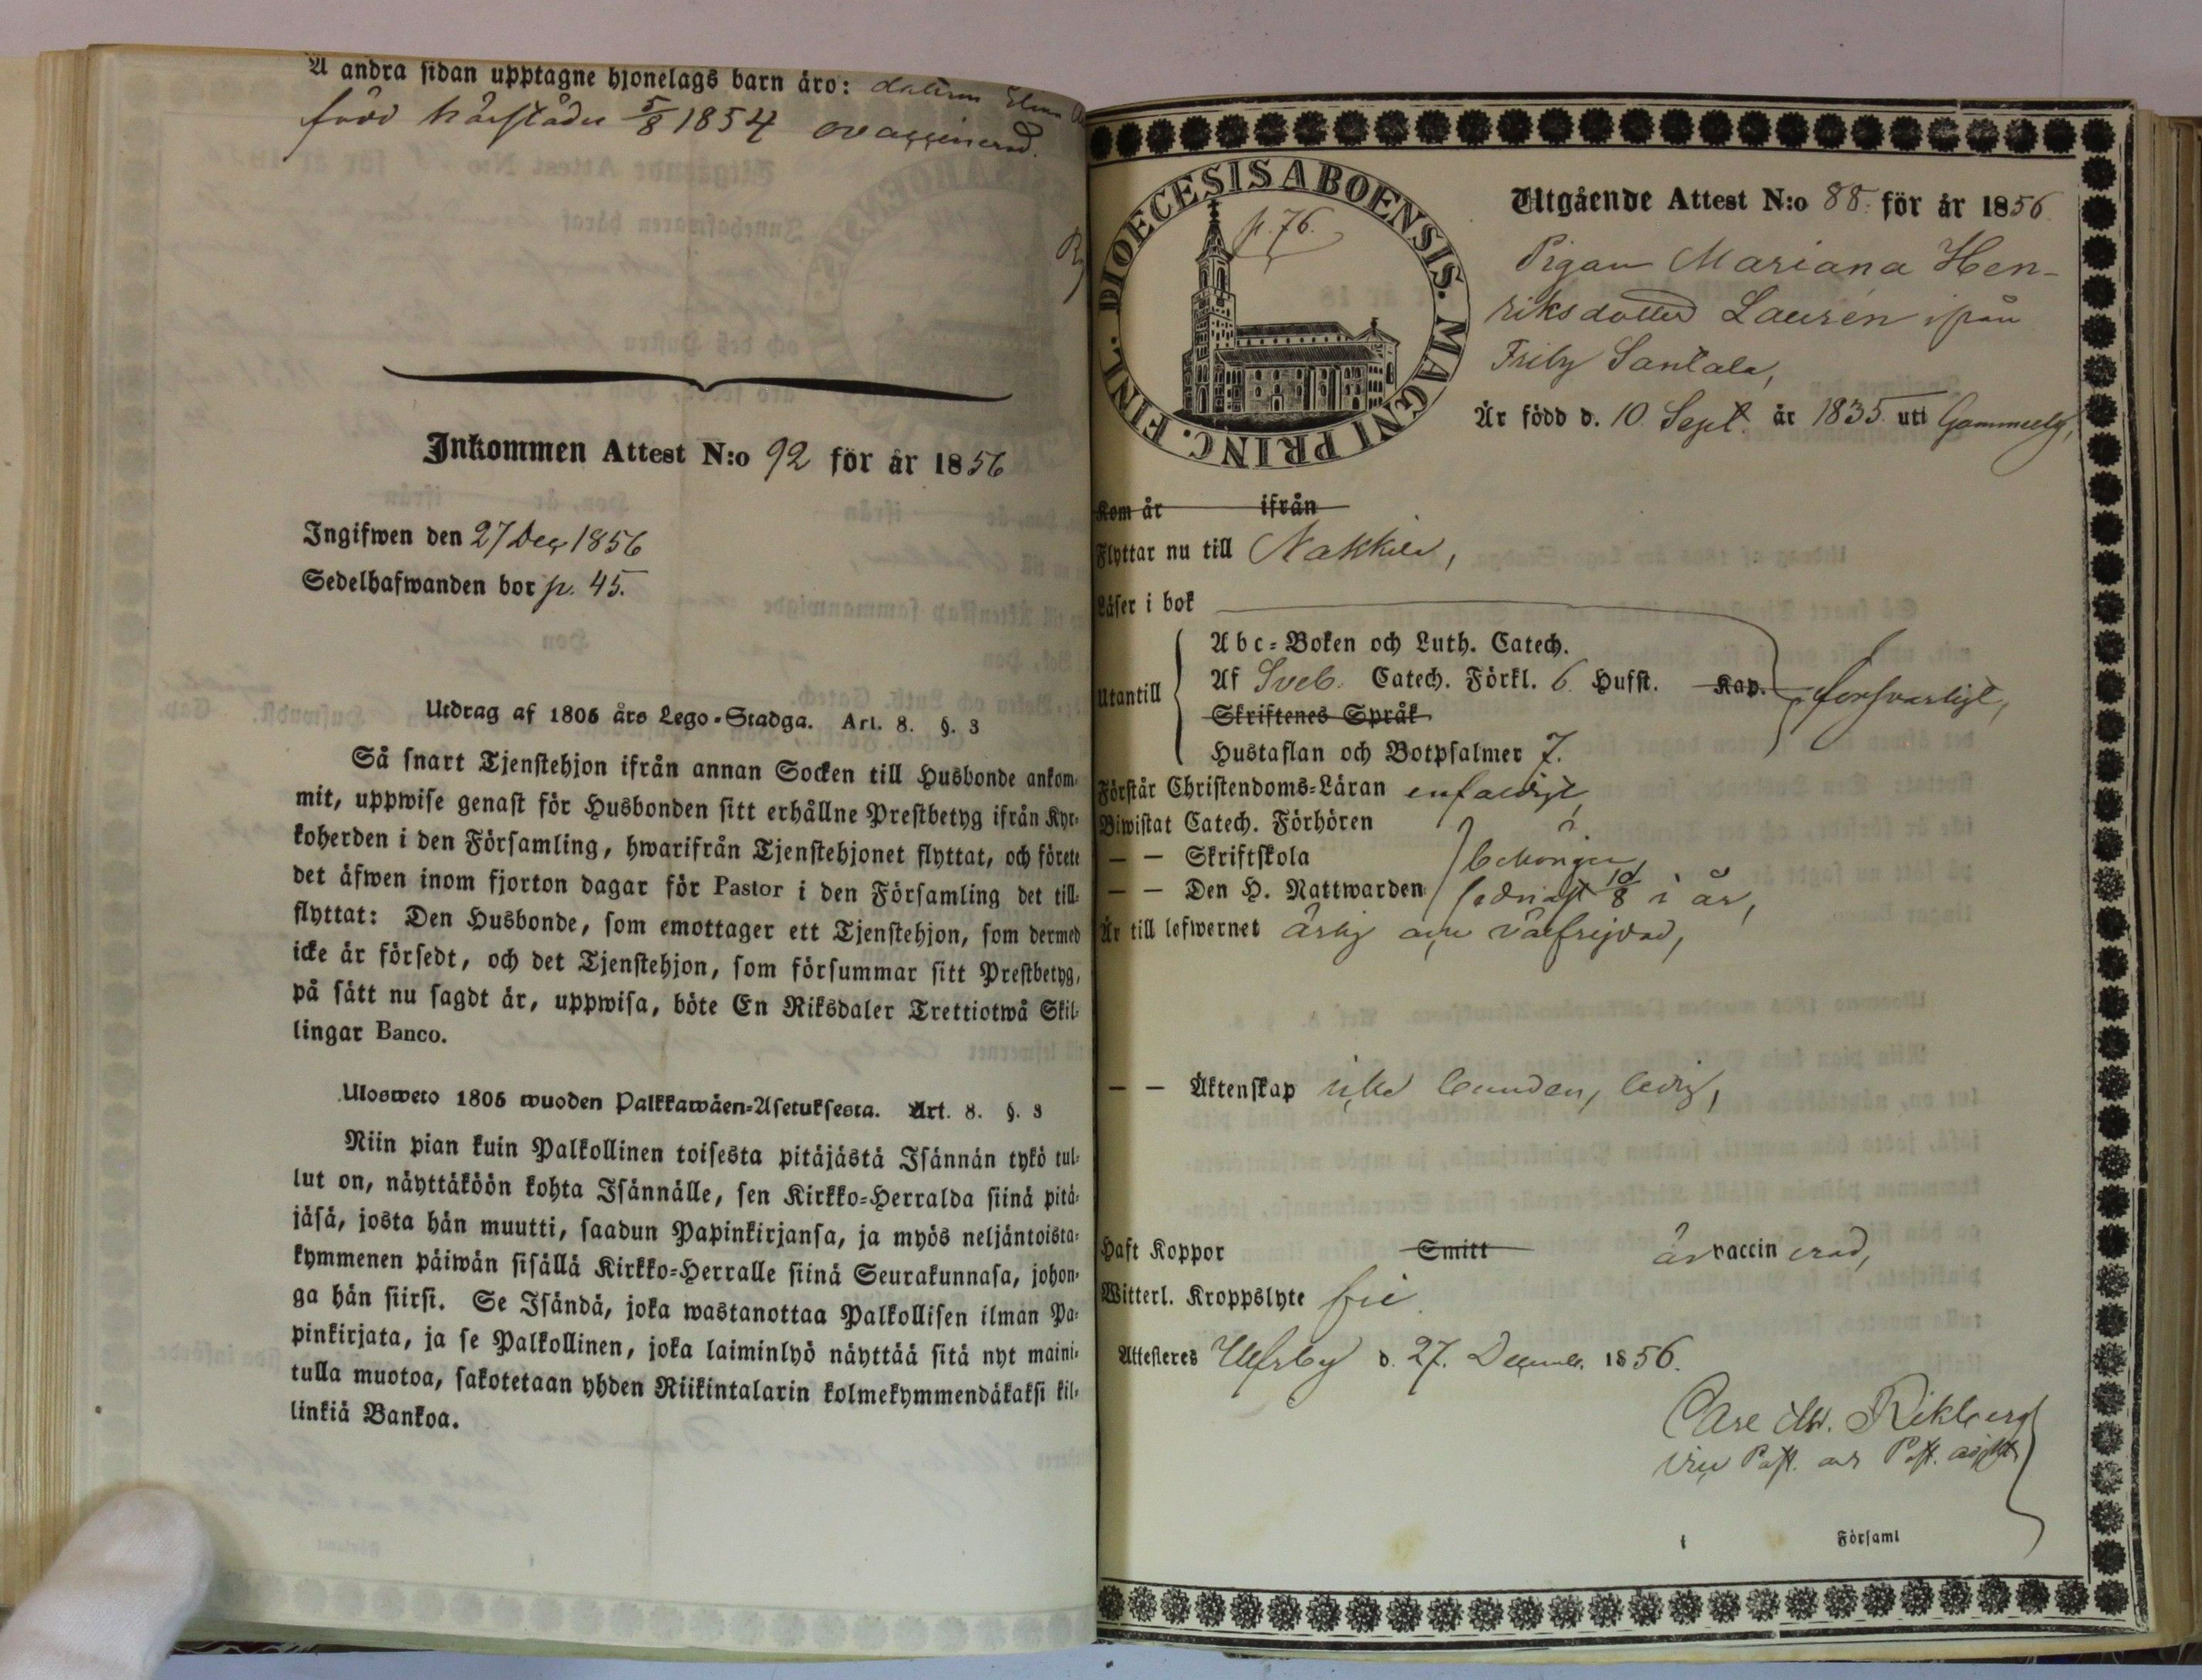 Å andra sidan upptagne hjonelags barn äro: dottern Elena
född härstädes 5/8 1854 ovaccinerad.
Inkommen Attest N:o 92 för år 1856
Ingifwen den 27 Dec 1856
Sedelhafwanden bor p. 45.
Utdrag af 1805 års Lego-Stadga. Art. 8. §. 3
Så snart Tjenstehjon ifrån annan Socken till Husbonde ankom-
mit, uppwise genast för Husbonden sitt erhållne Prestbetyg ifrån Kyr-
koherden i den Församling, hwarifrån Tjenstehjonet flyttat, och förete
det äfwen inom fjorton dagar för Pastor i den Församling det till-
flyttat: Den Husbonde, som emottager ett Tjenstehjon, som dermed
icke är försedt, och det Tjenstehjon, som försummar sitt Prestbetyg,
på sätt nu sagdt är, uppwisa, böte En Riksdaler Trettiotwå Skil-
lingar Banco.
Ulosweto 1805 wuoden Palkkawäen-Asetuksesta. Art. 8. §. 3
Niin pian kuin Palkollinen toisesta pitäjästä Isännän tykö tul-
lut on, näyttäköön kohta Isännälle, sen Kirkko-Herralda siinä pitä-
jäsä, josta hän muutti, saadun Papinkirjansa, ja myös neljäntoista-
kymmenen päiwän sisällä Kirkko-Herralle siinä Seurakunnasa, johon-
ga hän siirsi. Se Isändä, joka wastanottaa Palkollisen ilman Pa-
pinkirjata, ja se Palkollinen, joka laiminlyö näyttää sitä nyt maini-
tulla muotoa, sakotetaan yhden Riikintalarin kolmekymmendäkaksi kil-
linkiä Bankoa.
DIOECESIS ABOENSIS. MAGNI PRINC. FINL.
p. 76.
Utgående Attest N:o 88. för år 1856
Pigan Mariana Hen-
riksdotter Laurén ifrån
Friby Santala,
Är född d. 10 Sept. år 1835 uti Gammelby,
Kom år ifrån
Flyttar nu till Nakkila,
Läser i bok
Utantill
Abc-Boken och Luth. Catech.
Af Sveb. Catech. Förkl. 6 Hufst. Kap. försvarligt,
Skriftenes Språk
Hustaflan och Botpsalmer 7.
Förstår Christendoms-Läran enfaldigt,
Biwistat Catech. Förhören
— — Skriftskola behörigen,
— — Den H. Nattwarden sednast 10/8 i år,
Är till lefwernet ärlig och välfrejdad,
— — Äktenskap icke bunden, ledig,
Haft Koppor Smitt är vaccinerad,
Witterl. Kroppslyte fri.
Attesteres Ulfsby d. 27. Decemb. 1856.
Carl M. Rikberg
vice Past. och Past. adjkt
i Församl